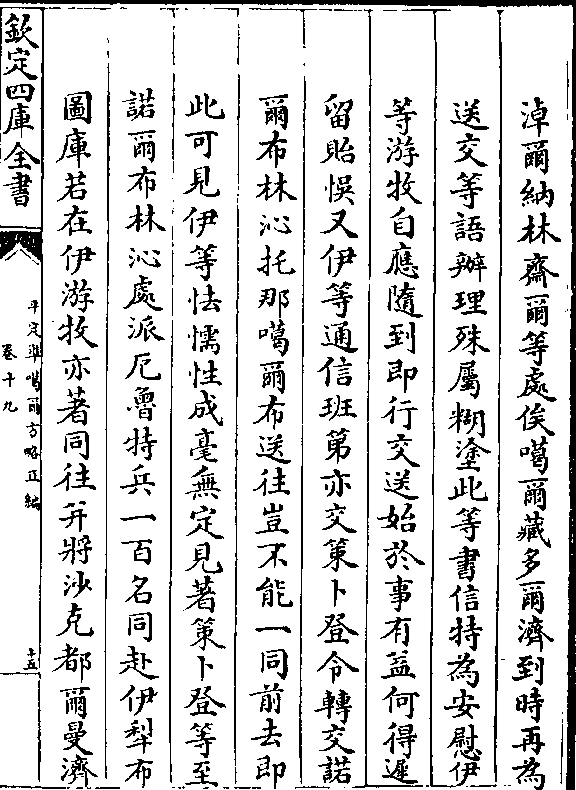 淖爾納林齋爾等處俟噶爾藏多爾濟到時再為
送交等語辦理殊屬糊塗此等書信特為安慰伊
等游牧自應隨到即行交送始於事有益何得遲
留貽悞又伊等通信班第亦交策卜登令轉交諾
爾布林沁托那噶爾布送往豈不能一同前去即
此可見伊等怯懦性成毫無定見著策卜登等至
諾爾布林沁處派厄魯特兵一百名同赴伊犁布
圖庫若在伊游牧亦著同往并將沙克都爾曼濟
欽定四庫全書
平定準噶爾方略正編
卷十九
十五